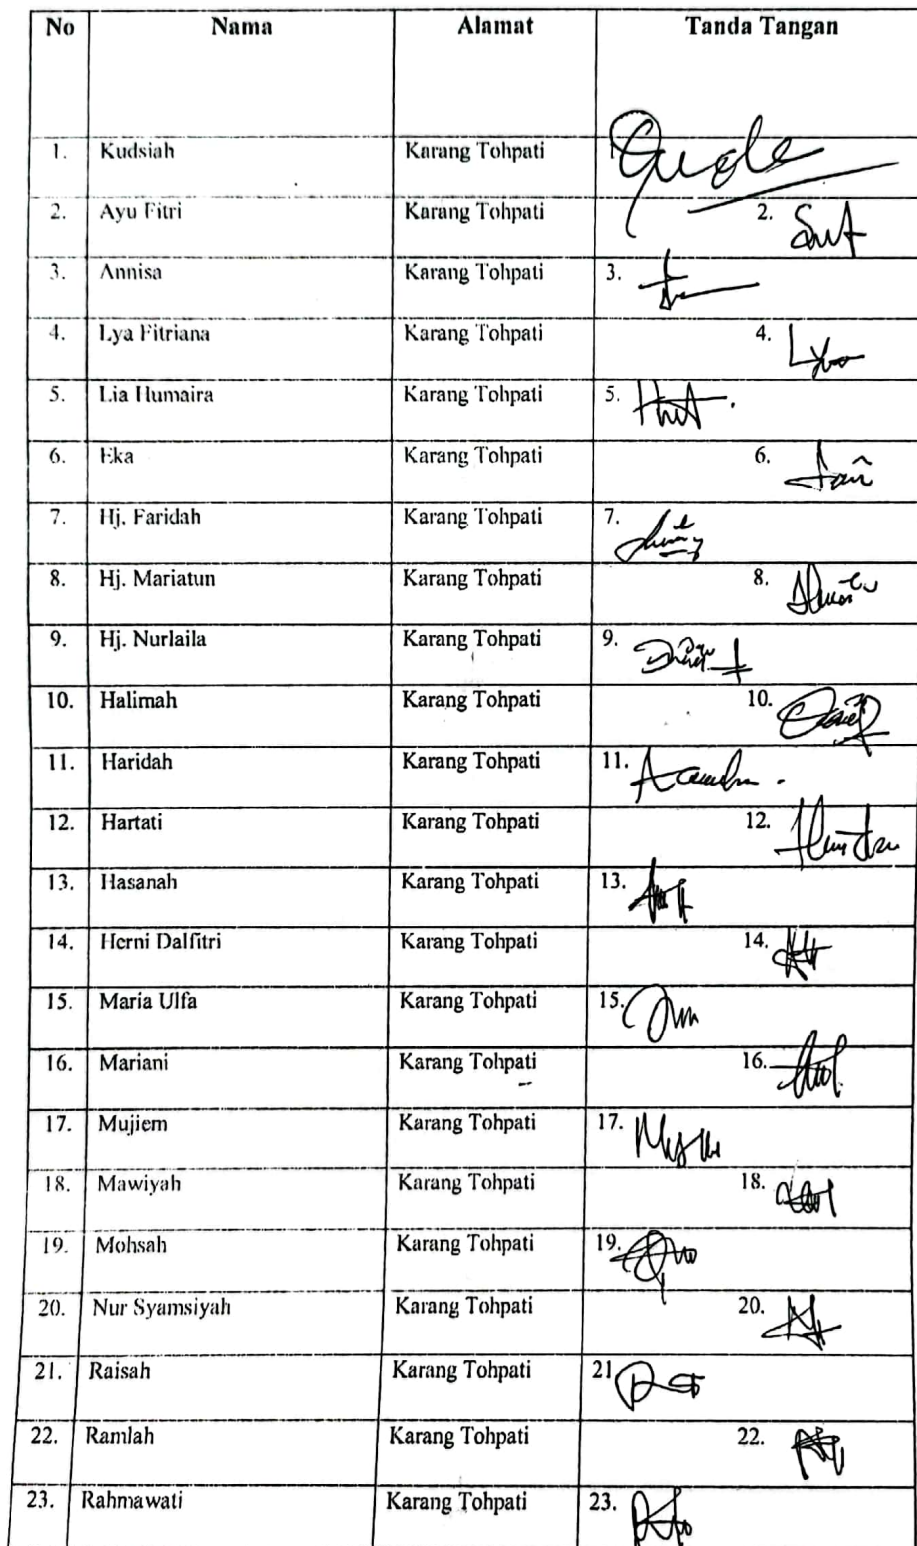 No Nama Alamat Tanda Tangan
1. Kudsiah Karang Tohpati 1
2. Ayu Fitri Karang Tohpati 2.
3. Annisa Karang Tohpati 3.
4. Lya Fitriana Karang Tohpati 4.
5. Lia Humaira Karang Tohpati 5.
6. Eka Karang Tohpati 6.
7. Hj. Faridah Karang Tohpati 7.
8. Hj. Mariatun Karang Tohpati 8.
9. Hj. Nurlaila Karang Tohpati 9.
10. Halimah Karang Tohpati 10.
11. Haridah Karang Tohpati 11.
12. Hartati Karang Tohpati 12.
13. Hasanah Karang Tohpati 13.
14. Herni Dalfitri Karang Tohpati 14.
15. Maria Ulfa Karang Tohpati 15.
16. Mariani Karang Tohpati 16.
17. Mujiem Karang Tohpati 17.
18. Mawiyah Karang Tohpati 18.
19. Mohsah Karang Tohpati 19.
20. Nur Syamsiyah Karang Tohpati 20.
21. Raisah Karang Tohpati 21
22. Ramlah Karang Tohpati 22.
23. Rahmawati Karang Tohpati 23.